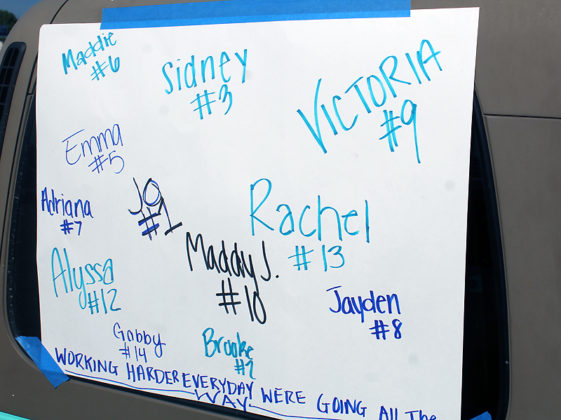 Maddie
#6
Sidney
#3
VICTORIA
#9
Emma
#5
Adriana
#7
JO
#1
Rachel
#13
Alyssa
#12
Maddy J.
#10
Jayden
#8
Gabby
#14
Brooke
#2
WORKING HARDER EVERYDAY WERE GOING All The
WAY